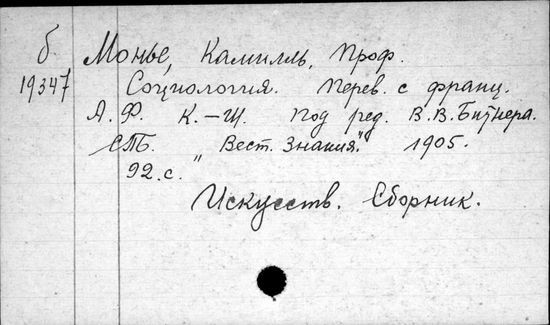 б Монье, Камилль, проф.
19347 Социология. Перев. с франц.
А. Ф. К.-Щ. Под ред. В.В. Битнера.
СПБ. "Вест. Знания." 1905.
92.с.
Искусств. Сборник.